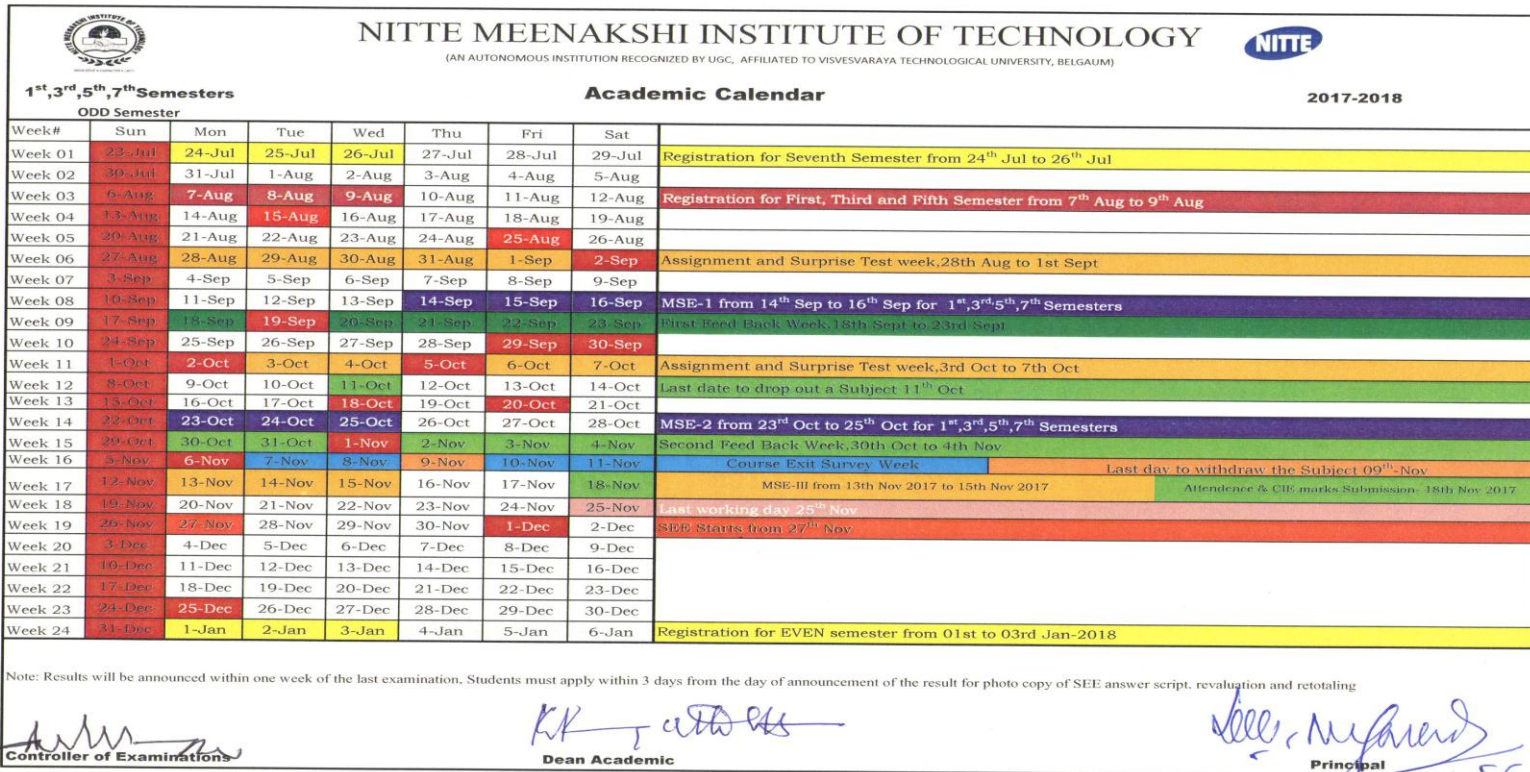 NITTE MEENAKSHI INSTITUTE OF TECHNOLOGY
NITTE
(AN AUTONOMOUS INSTITUTION RECOGNIZED BY UGC, AFFILIATED TO VISVESVARAYA TECHNOLOGICAL UNIVERSITY, BELGAUM)
1st,3rd,5th,7thSemesters Academic Calendar 2017-2018
ODD Semester
Week# Sun Mon Tue Wed Thu Fri Sat
Week 01 23-Jul 24-Jul 25-Jul 26-Jul 27-Jul 28-Jul 29-Jul Registration for Seventh Semester from 24th Jul to 26th Jul
Week 02 30-Jul 31-Jul 1-Aug 2-Aug 3-Aug 4-Aug 5-Aug
Week 03 6-Aug 7-Aug 8-Aug 9-Aug 10-Aug 11-Aug 12-Aug Registration for First, Third and Fifth Semester from 7th Aug to 9th Aug
Week 04 13-Aug 14-Aug 15-Aug 16-Aug 17-Aug 18-Aug 19-Aug
Week 05 20-Aug 21-Aug 22-Aug 23-Aug 24-Aug 25-Aug 26-Aug
Week 06 27-Aug 28-Aug 29-Aug 30-Aug 31-Aug 1-Sep 2-Sep Assignment and Surprise Test week,28th Aug to 1st Sept
Week 07 3-Sep 4-Sep 5-Sep 6-Sep 7-Sep 8-Sep 9-Sep
Week 08 10-Sep 11-Sep 12-Sep 13-Sep 14-Sep 15-Sep 16-Sep MSE-1 from 14th Sep to 16th Sep for 1st,3rd,5th,7th Semesters
Week 09 17-Sep 18-Sep 19-Sep 20-Sep 21-Sep 22-Sep 23-Sep First Feed Back Week,18th Sept to 23rd Sept
Week 10 24-Sep 25-Sep 26-Sep 27-Sep 28-Sep 29-Sep 30-Sep
Week 11 1-Oct 2-Oct 3-Oct 4-Oct 5-Oct 6-Oct 7-Oct Assignment and Surprise Test week,3rd Oct to 7th Oct
Week 12 8-Oct 9-Oct 10-Oct 11-Oct 12-Oct 13-Oct 14-Oct Last date to drop out a Subject 11th Oct
Week 13 15-Oct 16-Oct 17-Oct 18-Oct 19-Oct 20-Oct 21-Oct
Week 14 22-Oct 23-Oct 24-Oct 25-Oct 26-Oct 27-Oct 28-Oct MSE-2 from 23rd Oct to 25th Oct for 1st,3rd,5th,7th Semesters
Week 15 29-Oct 30-Oct 31-Oct 1-Nov 2-Nov 3-Nov 4-Nov Second Feed Back Week,30th Oct to 4th Nov
Week 16 5-Nov 6-Nov 7-Nov 8-Nov 9-Nov 10-Nov 11-Nov Course Exit Survey Week Last day to withdraw the Subject 09th-Nov
Week 17 12-Nov 13-Nov 14-Nov 15-Nov 16-Nov 17-Nov 18-Nov MSE-III from 13th Nov 2017 to 15th Nov 2017 Attendence & CIE marks Submission- 18th Nov 2017
Week 18 19-Nov 20-Nov 21-Nov 22-Nov 23-Nov 24-Nov 25-Nov Last working day 25th Nov
Week 19 26-Nov 27-Nov 28-Nov 29-Nov 30-Nov 1-Dec 2-Dec SEE Starts from 27th Nov
Week 20 3-Dec 4-Dec 5-Dec 6-Dec 7-Dec 8-Dec 9-Dec
Week 21 10-Dec 11-Dec 12-Dec 13-Dec 14-Dec 15-Dec 16-Dec
Week 22 17-Dec 18-Dec 19-Dec 20-Dec 21-Dec 22-Dec 23-Dec
Week 23 24-Dec 25-Dec 26-Dec 27-Dec 28-Dec 29-Dec 30-Dec
Week 24 31-Dec 1-Jan 2-Jan 3-Jan 4-Jan 5-Jan 6-Jan Registration for EVEN semester from 01st to 03rd Jan-2018
Note: Results will be announced within one week of the last examination. Students must apply within 3 days from the day of announcement of the result for photo copy of SEE answer script. revaluation and retotaling
Controller of Examinations Dean Academic Principal